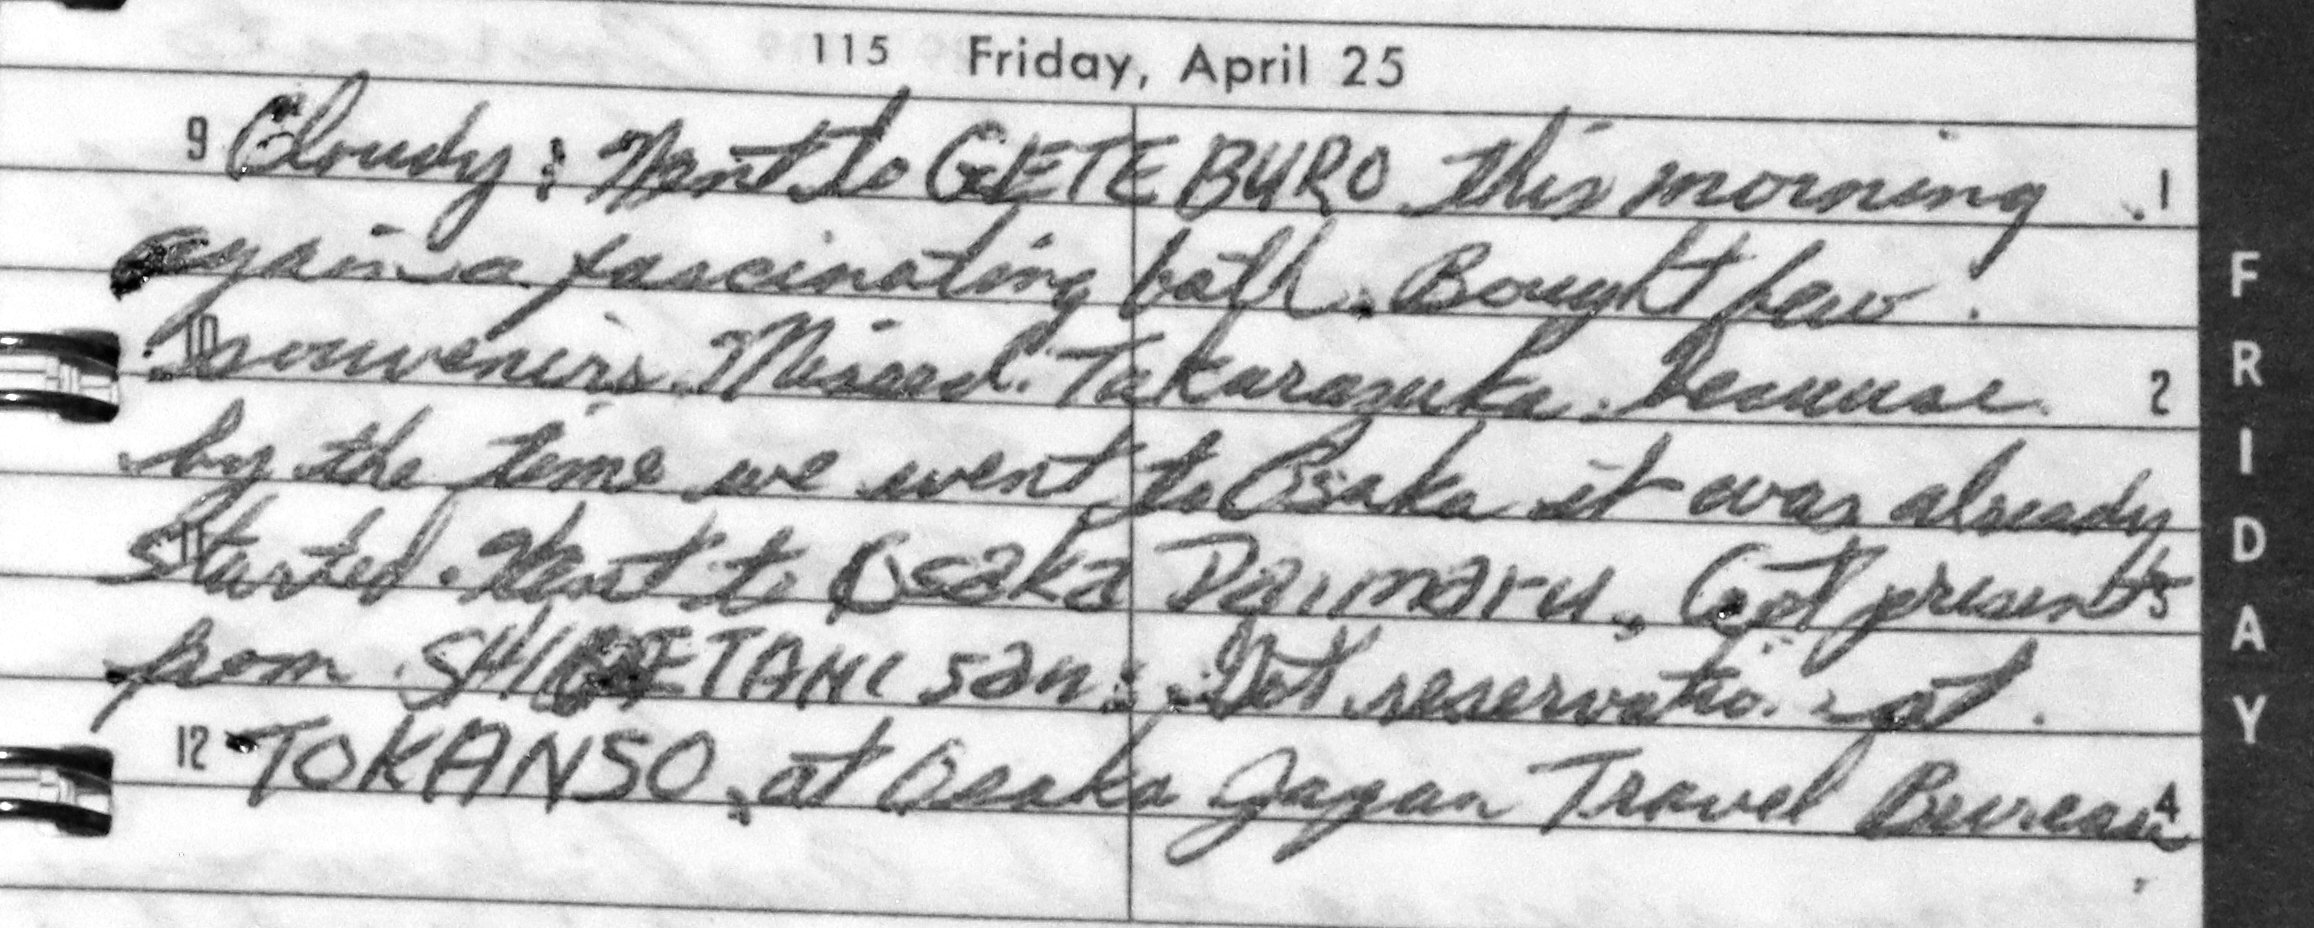 115 Friday, April 25
9 Cloudy: Went to GETE BURO this morning 1
again a fascinating bath. Bought few
10 souvenirs. Missed Takarazuka because 2
by the time we went to Osaka it was already
11 Started. Went to Osaka Daimaru. Got presents 3
from SHIGETANI san. Got reservation at
12 TOKANSO, at Osaka Japan Travel Bureau 4
FRIDAY